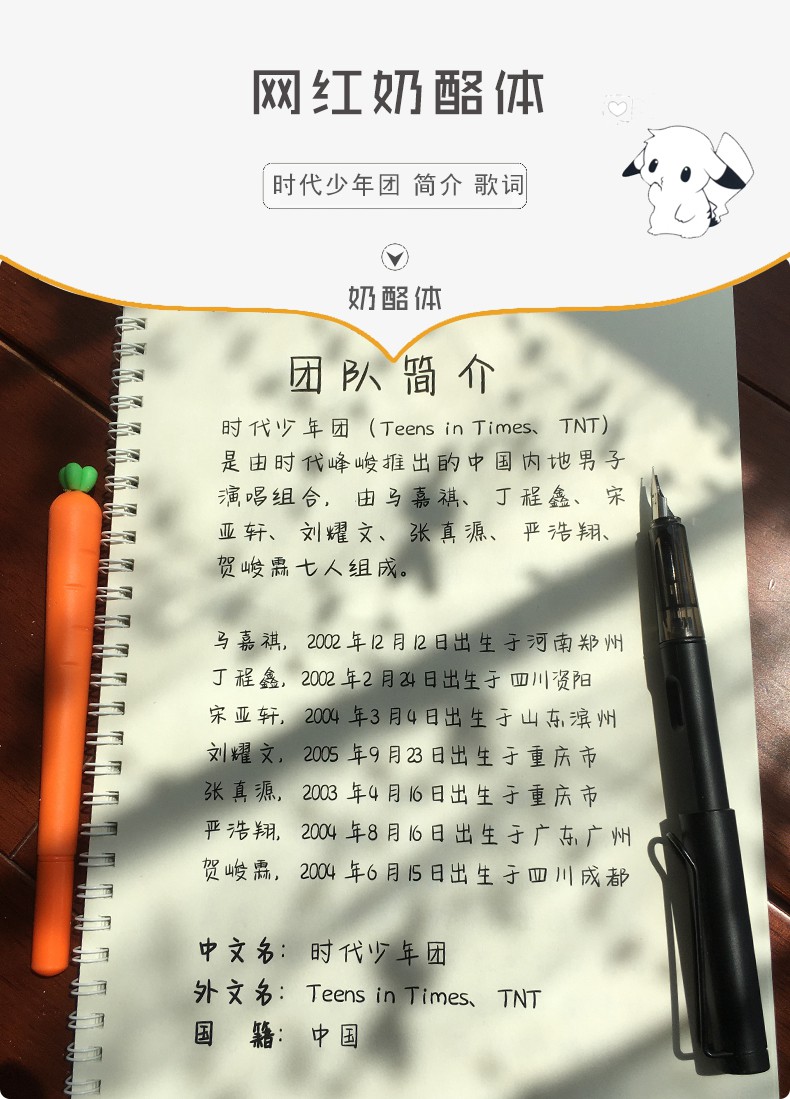 网红奶酪体
时代少年团 简介 歌词
奶酪体
团队简介
时代少年团（Teens in Times、TNT）
是由时代峰峻推出的中国内地男子
演唱组合，由马嘉祺、丁程鑫、宋
亚轩、刘耀文、张真源、严浩翔、
贺峻霖七人组成。
马嘉祺，2002年12月12日出生于河南郑州
丁程鑫，2002年2月24日出生于四川资阳
宋亚轩，2004年3月4日出生于山东滨州
刘耀文，2005年9月23日出生于重庆市
张真源，2003年4月16日出生于重庆市
严浩翔，2004年8月16日出生于广东广州
贺峻霖，2004年6月15日出生于四川成都
中文名：时代少年团
外文名：Teens in Times、TNT
国 籍：中国